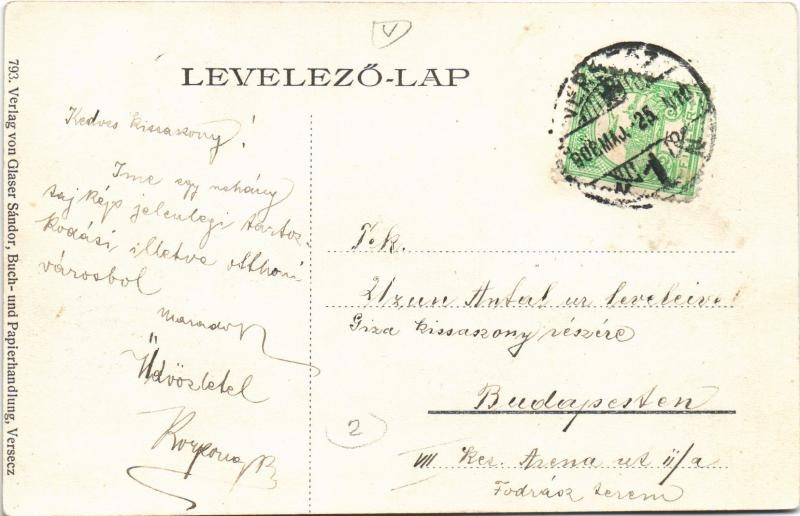 LEVELEZŐ-LAP
793. Verlag von Glaser Sándor, Buch- und Papierhandlung, Versecz
Kedves kissaszony!
Ime egy nehány
tajképp jelenlegi tartoz-
kodási illetve otthoni
városbol
maradok
Üdvözletel
908 MÁJ. 25
Tek.
Uzun Antal ur leveleivel
Giza kissaszony részére
Budapesten
VII Ker. Arena ut 11/a
Fodrász terem
2